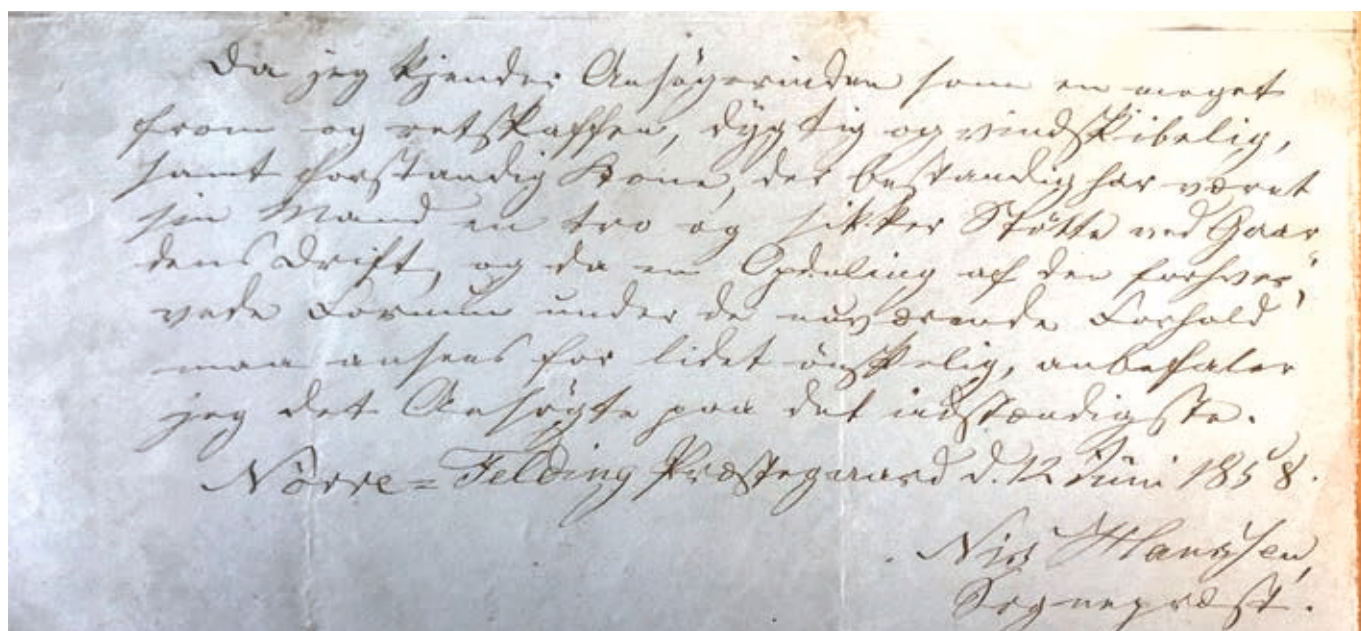 Da jeg kjender Ansøgerinden som en meget
from og retskaffen, dygtig og vindskibelig,
samt forstandig Kone, der bestandig har været
sin Mand en tro og sikker Støtte ved Gaar-
dens Drift, og da en Opdeling af den forhver-
vede Formue under de nuværende Forhold
maa ansees for lidet ønskelig, anbefaler
jeg det Ansøgte paa det indstændigste.
Nørre-Felding Præstegaard d. 12 Juni 1858.
Nis Hanssen,
Sognepræst.